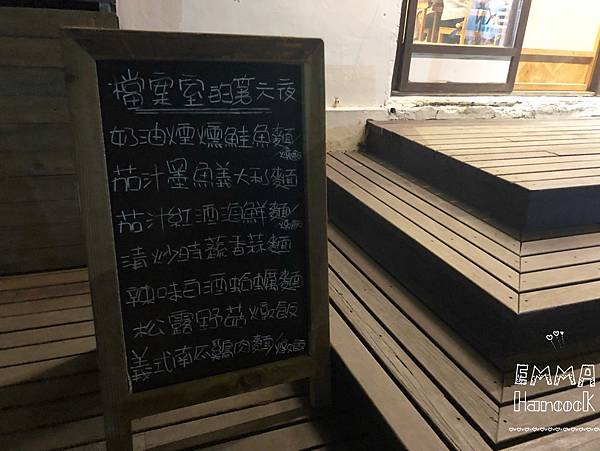 檔案室的第六夜
奶油煙燻鮭魚麵/燉飯
茄汁墨魚義大利麵
茄汁紅酒海鮮麵/燉飯
清炒時蔬香蒜麵
辣味白酒蛤蠣麵
松露野菇燉飯
義式南瓜雞肉麵/燉飯
EMMA
Hancock